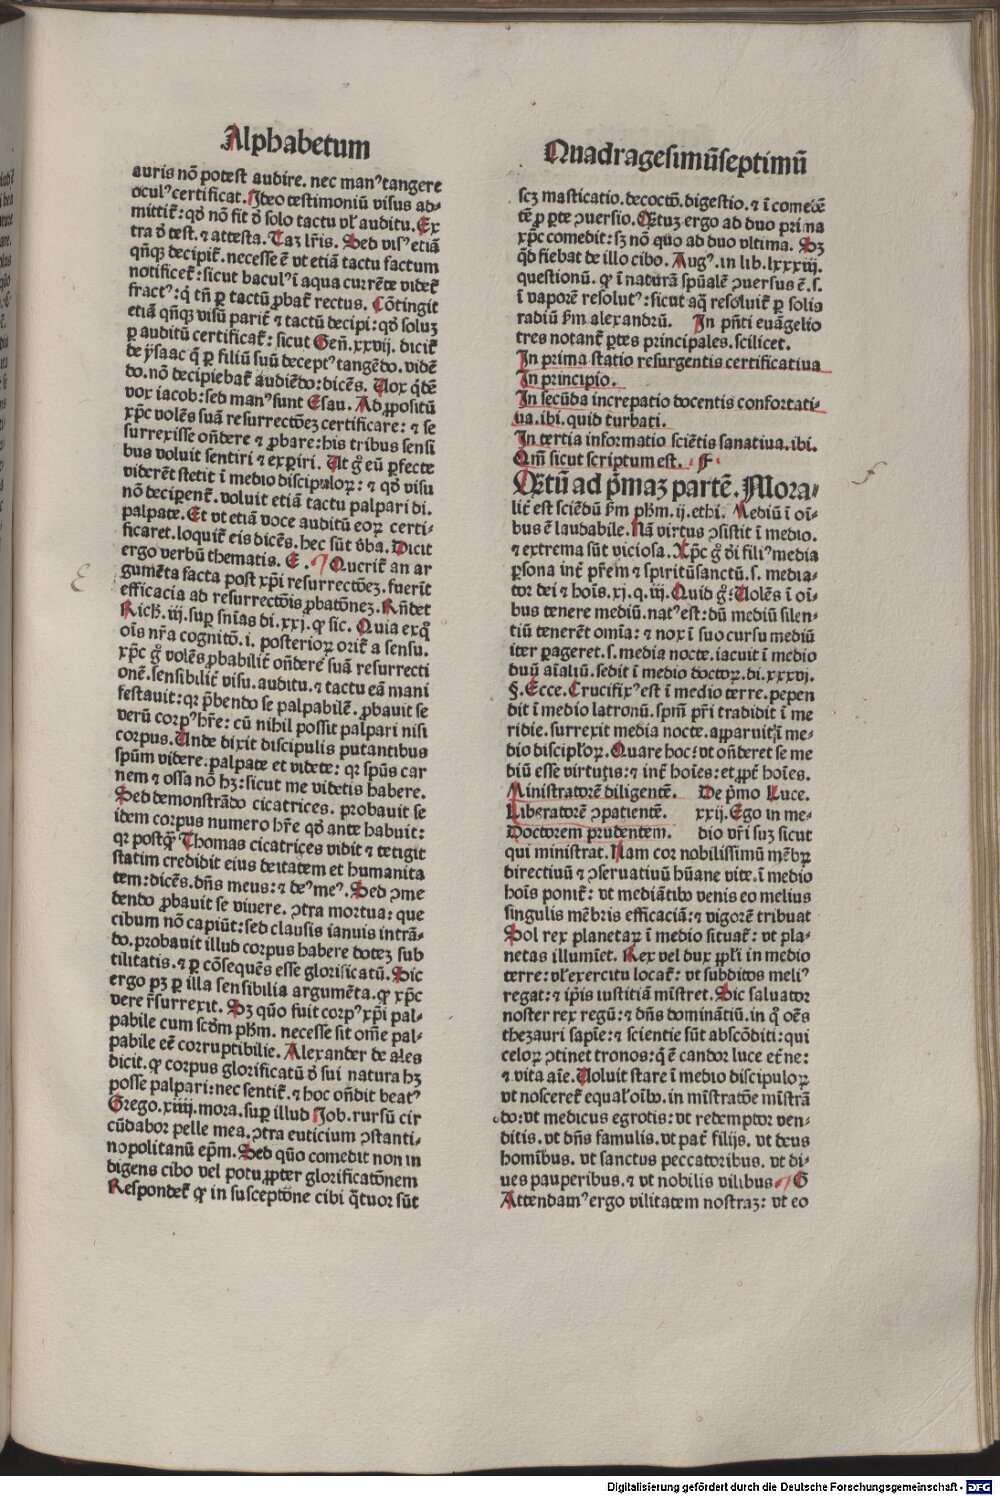 Alphabetum
auris nō potest audire. nec manꝰ tangere
oculꝰ certificat. Ideo testimoniū visus ad⸗
mittit̄: qꝛ nō fit ꝺ̄ solo tactu vl̓ auditu. Ex
tra ꝺ̄ test. ⁊ attesta. Taꝫ lr̄is. Sed visꝰ etiā
qn̄qꝫ decipit̄. necesse ē vt etiā tactu factum
notificet̄: sicut baculꝰ ī aqua currēte videt̄
fractꝰ: q̄ tn̄ ꝑ tactū ꝓbat̄ rectus. Cōtingit
etiā qn̄qꝫ visū parit̄ ⁊ tactū decipi: qꝺ̄ soluꝫ
ꝑ auditū certificat̄: sicut Gen̄. xxvij. dicit̄
de ysaac q̄ ꝑ filiū suū deceptꝰ tangēdo. vidē
do. nō decipiebat̄ audiēdo: dicēs. Vox q̄dē
vox iacob: sed manꝰ sunt Esau. Ad ꝓpositū
xp̄c volēs suā resurrectōeꝫ certificare: ⁊ se
surrexisse on̄dere ⁊ ꝓbare: his tribus sensi
bus voluit sentiri ⁊ exꝑiri. Ut g̊ eū ꝑfecte
viderēt stetit ī medio discipuloꝝ: ⁊ qꝺ̄ visu
nō deciperent̄. voluit etiā tactu palpari di.
palpate. Et vt etiā voce auditū eoꝝ certi⸗
ficaret. loquit̄ eis dicēs. hec sūt ꝟba. Dicit
ergo verbū thematis. E . ¶ Querit̄ an ar
gumēta facta post xp̄i resurrectōeꝫ. fuerīt
efficacia ad resurrectōis ꝓbatōneꝫ. Rn̄det
Rich̄. iij. suꝑ sn̄ias di. xxj. ꝙ sic. Quia ex q̊
oīs nr̄a cognitō. i. posterioꝝ orit̄ a sensu.
xp̄c g̊ volēs ꝓbabilit̄ on̄dere suā resurrecti
onē. sensibilit̄ visu. auditu. ⁊ tactu eā mani
festauit: qꝛ p̄bendo se palpabilē. ꝓbauit se
verū corpꝰ hr̄e: cū nihil possit palpari nisi
corpus. Unde dixit discipulis putantibus
spūm videre. palpate et videte: qꝛ spūs car
nem ⁊ ossa nō hꝫ: sicut me videtis habere.
Sed demonstrādo cicatrices. probauit se
idem corpus numero hr̄e qꝺ̄ ante habuit:
qꝛ postq̄ Thomas cicatrices vidit ⁊ tetigit
statim credidit eius deitatem et humanita
tem: dicēs. dn̄s meus: ⁊ deꝰ meꝰ. Sed ꝯme
dendo ꝓbauit se viuere. ꝯtra mortua: que
cibum nō capiūt: sed clausis ianuis intrā⸗
do. probauit illud corpus habere doteꝫ sub
tilitatis. ⁊ ꝑ cōsequēs esse glorificatū. Sic
ergo pꝫ ꝑ illa sensibilia argumēta. ꝙ xp̄c
vere r̄surrexit. Sꝫ quō fuit corpꝰ xp̄i pal⸗
pabile cum scd̄m ph̄m. necesse sit om̄e pal⸗
pabile eē corruptibilie. Alexander de ales
dicit. ꝙ corpus glorificatū ꝺ̄ sui natura hꝫ
posse palpari: nec sentit̄. ⁊ hoc on̄dit beatꝰ
Grego. xiiij. mora. suꝑ illud Job. rursū cir
cūdabor pelle mea. ꝯtra euticium ꝯstanti⸗
nopolitanū ep̄m. Sed quō comedit non in
digens cibo vel potu ꝓpter glorificatōnem
Respondet̄ ꝙ in susceptōne cibi q̄tuor sūt
Quadragesimūseptimū
scꝫ masticatio. decoctō. digestio. ⁊ ī comedē
tē ꝓ ꝑte ꝯuersio. Q̄tuꝫ ergo ad duo prima
xp̄c comedit: sꝫ nō quo ad duo vltima. Sꝫ
qꝺ̄ fiebat de illo cibo. Augꝰ. in lib. lxxxiij.
questionū. ꝙ ī naturā spūalē ꝯuersus ē. s.
ī vaporē resolutꝰ: sicut aq̄ resoluit̄ ꝑ solis
radiū ẜm alexandrū. In pn̄ti euāgelio
tres notant̄ ꝑtes principales. scilicet.
In prima statio resurgentis certificatiua
In principio.
In secūda increpatio docentis confortati⸗
ua. ibi. quid turbati.
In tertia informatio sciētis sanatiua. ibi.
Qm̄ sicut scriptum est. F
Q̄tū ad p̄maꝫ partē. Mora⸗
lit̄ est sciēdū ẜm ph̄m. ij. ethī. Mediū ī oī⸗
bus ē laudabile. Nā virtus ꝯsistit ī medio.
⁊ extrema sūt viciosa. Xp̄c g̊ ꝺ̄i filiꝰ media
ꝑsona int̄ pr̄em ⁊ spiritūsanctū. s. media⸗
tor dei ⁊ hoīs. xj. q. iij. Quid g̊: Volēs ī oī⸗
bus tenere mediū. natꝰ est: dū mediū silen⸗
tiū tenerēt omīa: ⁊ nox ī suo cursu mediū
iter ꝑageret. s. media nocte. iacuit ī medio
duū aīaliū. sedit ī medio doctoꝝ. di. xxxvj.
§. Ecce. Crucifixꝰ est ī medio terre. pepen
dit ī medio latronū. spm̄ pr̄i tradidit ī me
ridie. surrexit media nocte. apparuit ī me⸗
dio discipl̓oꝝ. Quare hoc: vt on̄deret se me
diū esse virtutis: ⁊ int̄ hoīes: et ꝓpt̄ hoīes.
Ministratorē diligentē. De p̄mo Luce.
Liberatorē ꝯpatientē. xxij. Ego in me⸗
Doctorem prudentem. dio vr̄i suꝫ sicut
qui ministrat. Nam cor nobilissimū mēbꝝ
directiuū ⁊ ꝯseruatiuū hūane vite. ī medio
hoīs ponit̄: vt mediātibꝰ venis eo melius
singulis mēbris efficaciā: ⁊ vigorē tribuat
Sol rex planetaꝝ ī medio situat̄: vt pla⸗
netas illumīet. Rex vel dux ꝓpl̓i in medio
terre: vl̓ exercitu locat̄: vt subditos meliꝰ
regat: ⁊ ip̄is iustitiā mīstret. Sic saluator
noster rex regū: ⁊ dn̄s dominātiū. in q̊ oēs
thezauri sapīe: ⁊ scientie sūt abscōditi: qui
celoꝝ ꝯtinet tronos: q̄ ē candor luce et̄ne:
⁊ vita aīe. Voluit stare ī medio discipuloꝝ
vt nosceret̄ equal̓ oībꝰ. in mīstratōe mīstrā
do: vt medicus egrotis: vt redemptor ven⸗
ditis. vt dn̄s famulis. vt pat̄ filijs. vt deus
homībus. vt sanctus peccatoribus. vt di⸗
ues pauperibus. ⁊ vt nobilis vilibus ¶ G
Attendamꝰ ergo vilitatem nostraꝫ: vt eo
Digitalisierung gefördert durch die Deutsche Forschungsgemeinschaft - DFG